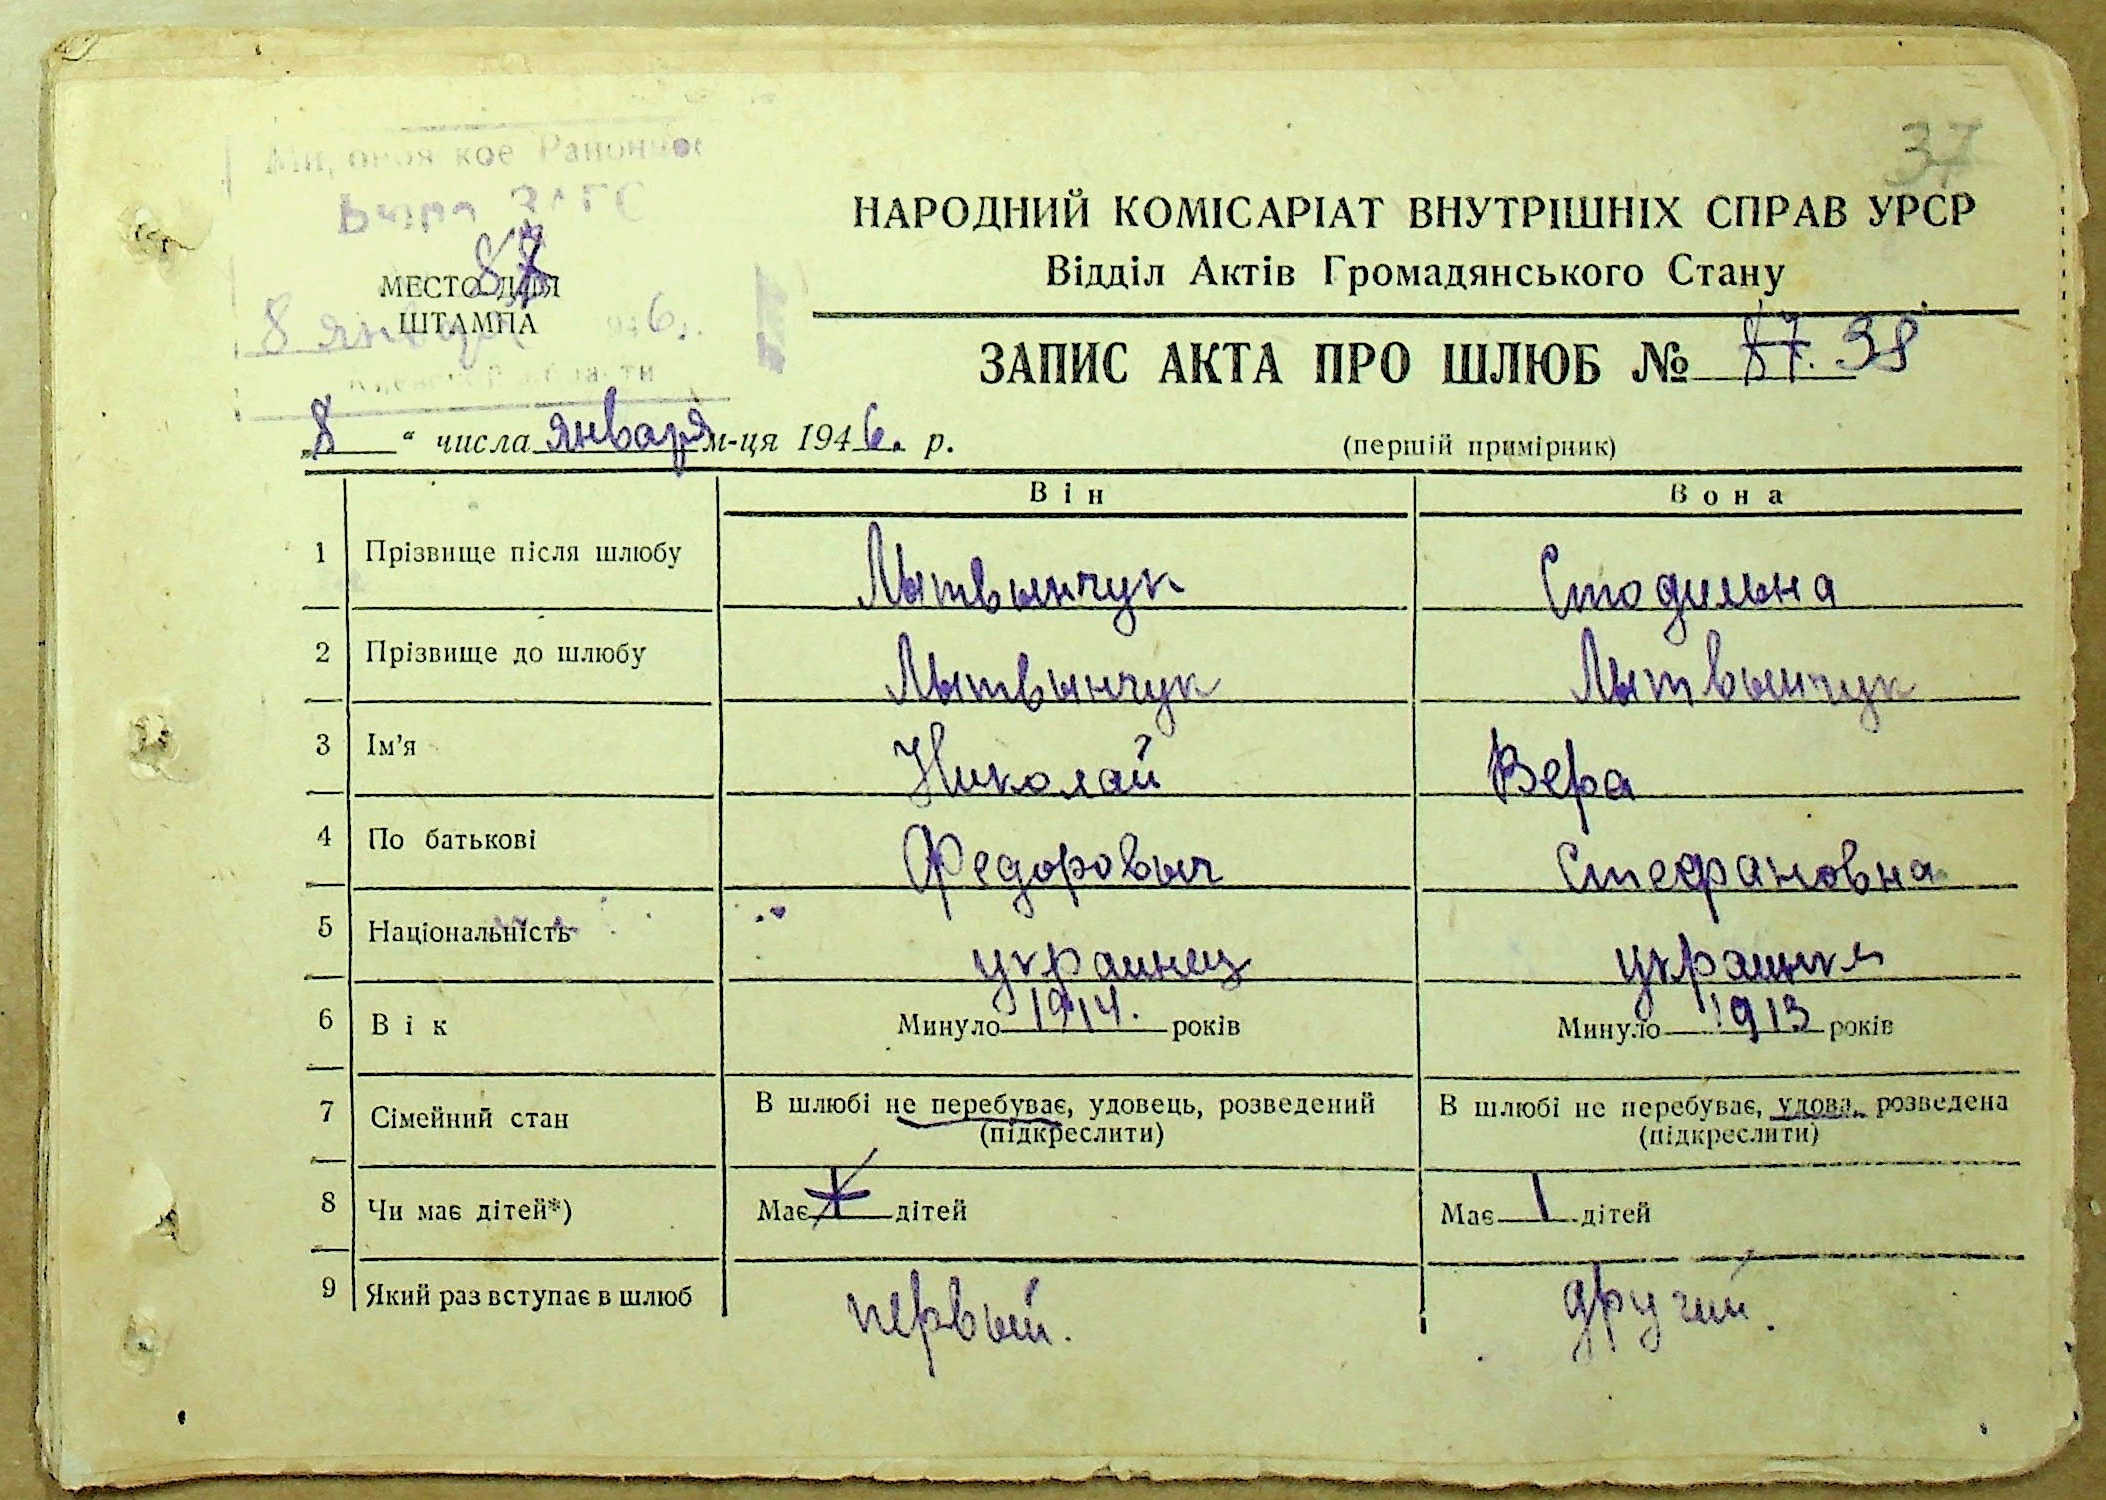 37
ЗАГС
МЕСТО ДЛЯ
ШТАМПА
8 января 6.
НАРОДНИЙ КОМІСАРІАТ ВНУТРІШНІХ СПРАВ УРСР
Відділ Актів Громадянського Стану
ЗАПИС АКТА ПРО ШЛЮБ № 87. 38
„8“ числа января м-ця 1946. р.
(перший примірник)
Він Вона
1 Прізвище після шлюбу Лытвынчук Стодильна
2 Прізвище до шлюбу Лытвынчук Лытвынчук
3 Ім'я Николай Вера
4 По батькові Федоровыч Стефановна
5 Національність украинец
6 Вік Минуло 1914. років Минуло 1913 років
7 Сімейний стан В шлюбі не перебуває, удовець, розведений В шлюбі не перебуває, удова, розведена
(підкреслити) (підкреслити)
8 Чи має дітей*) Має дітей Має 1 дітей
9 Який раз вступає в шлюб первый. другий.